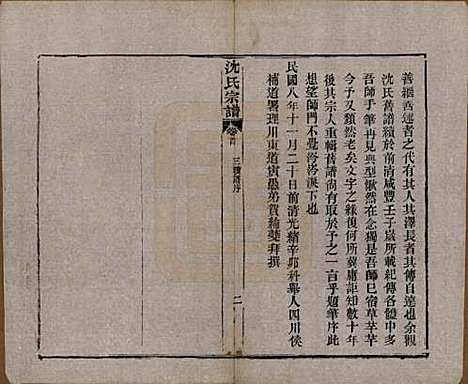 善繼善述者之代有其人其澤長者其傳自遠也余觀
沈氏舊譜續於前清咸豐壬子嵗所載紀傳各體中多
吾師手筆再見典型愀然在念獨是吾師已宿草芊芊
今予又頹然老矣文字之緣復何所冀庸詎知數十年
後其宗人重輯舊譜尙有取於予之一言乎題筆序此
想望師門不覺涔涔淚下也
民國八年十一月二十日前清光緒辛卯科舉人四川候
補道署理川東道寅愚弟黃 拜撰
沈氏宗譜
卷首
三續譜序
二